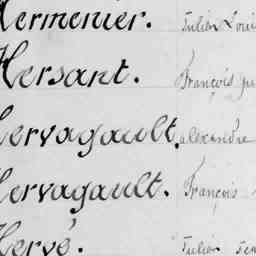 Hermenier. Julien Loui
Hersant. François
Hervagault. alexandre
Hervagault. François
Hervé. Julien